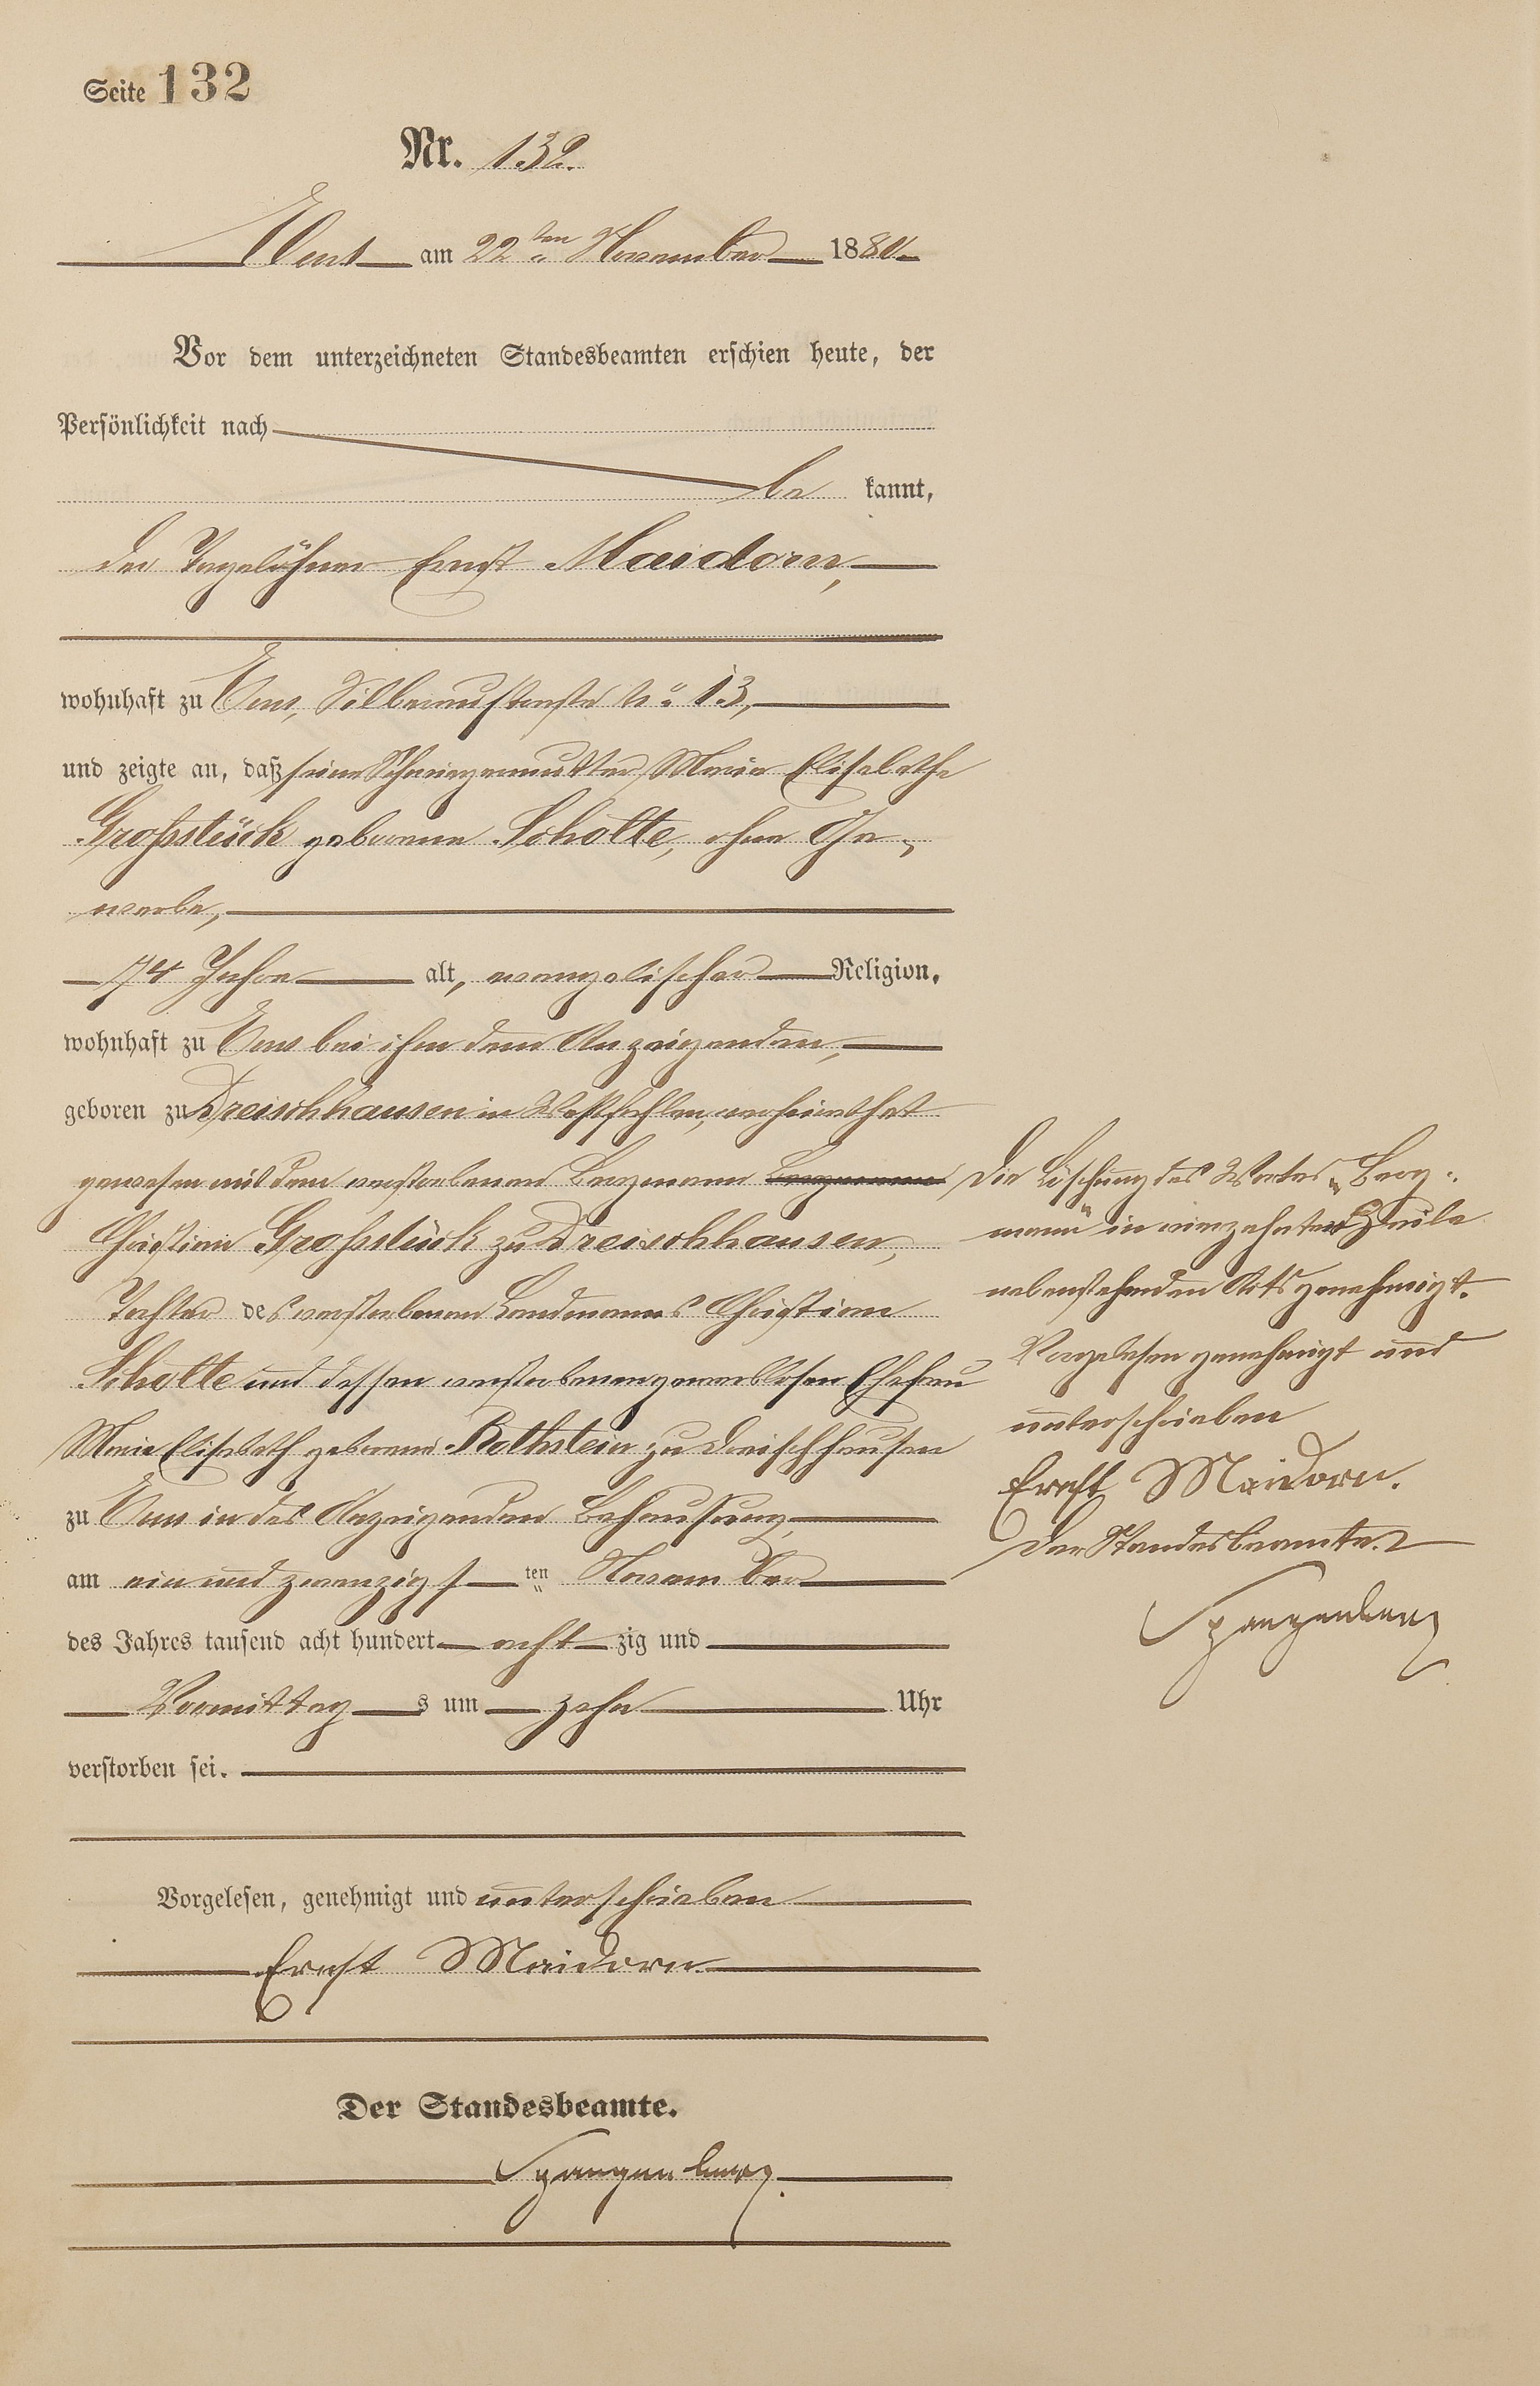 Seite 132
Nr. 132.
Ems am 22ten November 1880
Vor dem unterzeichneten Standesbeamten erschien heute, der
Persönlichkeit nach
be kannt,
der Tagelöhner Ernst Maidorn,
wohnhaft zu Ems, Silberaustraße No 13,
und zeigte an, daß seine Schwiegermutter Marie Elisabethe
Großstück geborene Scholte, ohne Ge-
werbe,
74 Jahre alt, evangelischer Religion,
wohnhaft zu Ems bei ihm dem Anzeigenden,
geboren zu Dreischhausen in Westfahlen, verheirathet
gewesen mit dem verstorbenen Bergmann Bergmann
Christian Großstück zu Dreischhausen,
Tochter des verstorbenen Landmanns Christian
Scholte und dessen verstorbenen gewerblosen Ehefrau
Marie Elisabeth geborene Rothstein zu Dreischhausen
zu Ems in des Anzeigenden Behausung,
am ein und zwanzigsten November
des Jahres tausend acht hundert acht zig und
Vormittags um zehn Uhr
verstorben sei.
Vorgelesen, genehmigt und unterschrieben
Ernst Maidorn
Der Standesbeamte.
Spangenberg.
Die Löschung des Wortes „Berg-
mann" in vierzehnter Zeile
nebenstehenden Akts genehmigt.
Vorgelesen genehmigt und
unterschrieben
Ernst Maidorn.
Der Standesbeamte.
Spangenberg